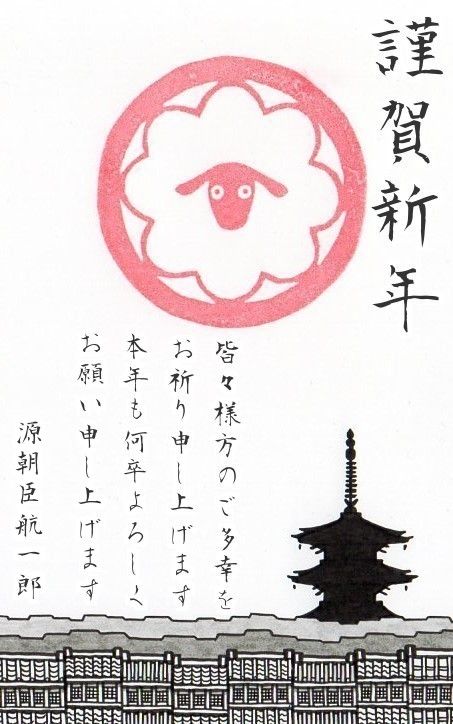 謹賀新年
皆々様方のご多幸を
お祈り申し上げます
本年も何卒よろしく
お願い申し上げます
源朝臣航一郎